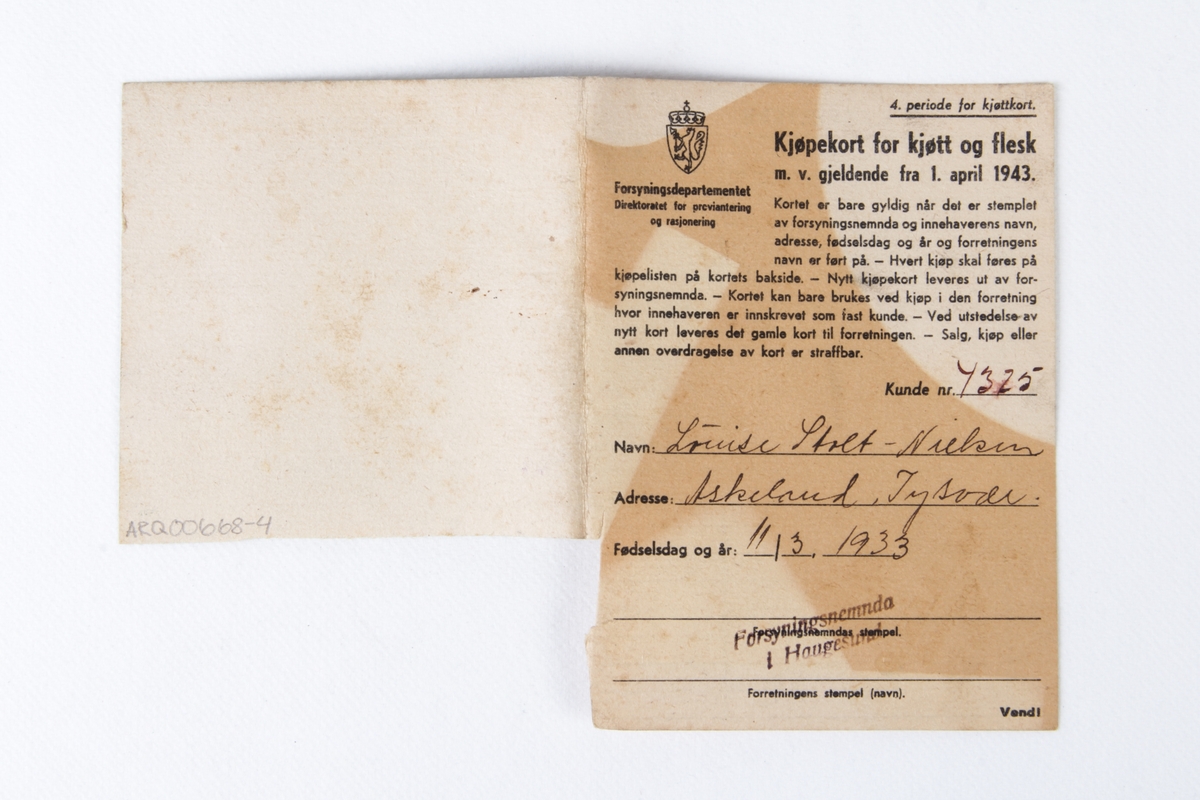 4. periode for kjøttkort.
Kjøpekort for kjøtt og flesk
m. v. gjeldende fra 1. april 1943.
Forsyningsdepartementet
Direktoratet for proviantering
og rasjonering
Kortet er bare gyldig når det er stemplet
av forsyningsnemnda og innehaverens navn,
adresse, fødselsdag og år og forretningens
navn er ført på. — Hvert kjøp skal føres på
kjøpelisten på kortets bakside. — Nytt kjøpekort leveres ut av for-
syningsnemnda. — Kortet kan bare brukes ved kjøp i den forretning
hvor innehaveren er innskrevet som fast kunde. — Ved utstedelse av
nytt kort leveres det gamle kort til forretningen. — Salg, kjøp eller
annen overdragelse av kort er straffbar.
Kunde nr. 4325
Navn: Louise Stolt-Nielsen
Adresse: Askeland, Tysvær.
Fødselsdag og år: 11/3, 1933
Forsyningsnemnda
i Haugesund
Forsyningsnemndas stempel.
Forretningens stempel (navn).
Vend!
ARQ00668-4